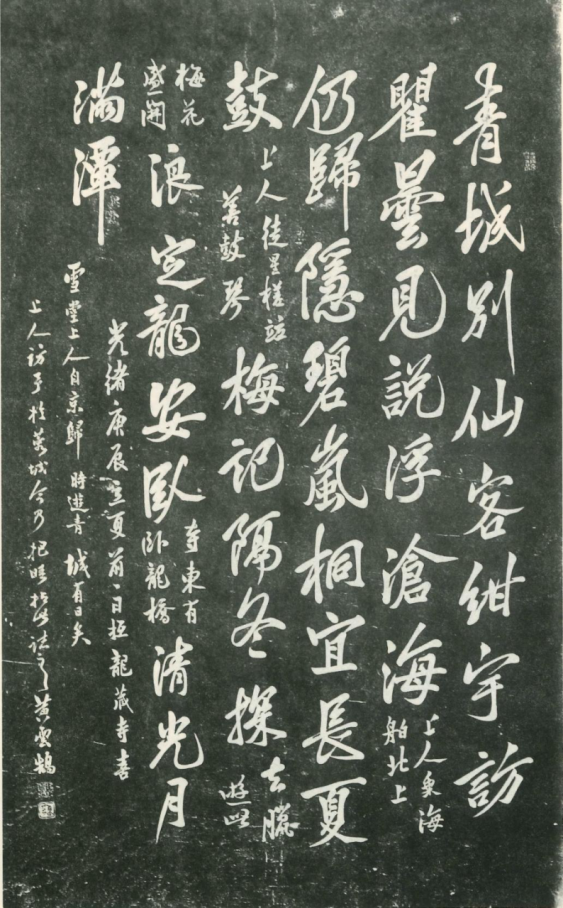 青城別仙客紺宇訪
瞿曇見說浮滄海
上人乘海
舶北上
仍歸隱碧嵐桐宜長夏
鼓
上人徒星槎
善鼓琴
梅記隔冬探
去臘
遊此
梅花
盛開
浪定龍安臥
寺東有
臥龍橋
清光月
滿潭
光緒庚辰立夏前一日抵龍藏寺喜
雪堂上人自京歸時遊青城有日矣
上人訪予於蓉城今乃把晤於此誌之黃雲鵠